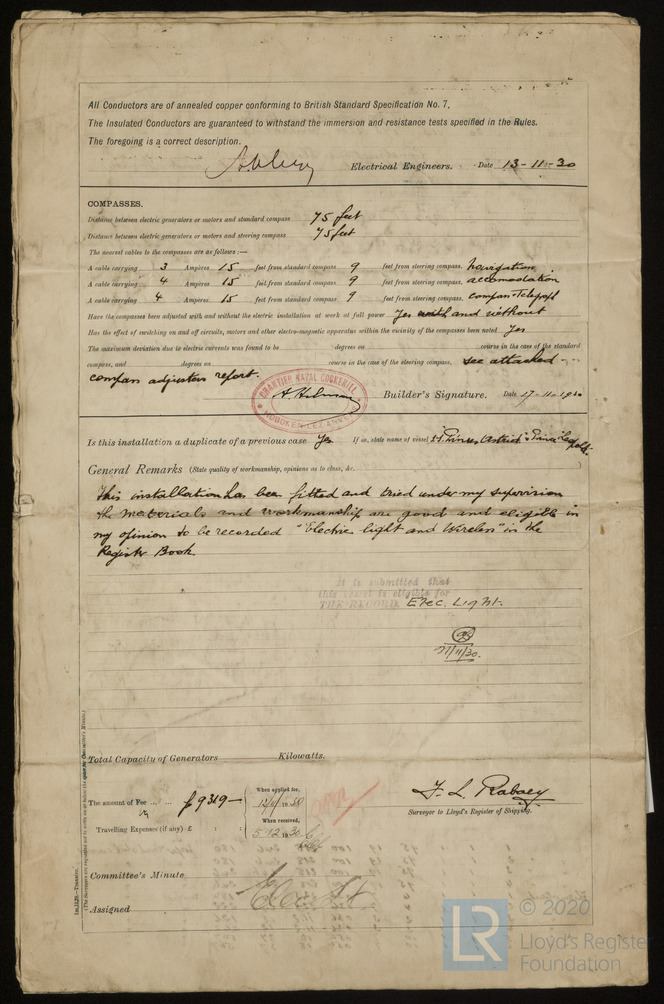 All Conductors are of annealed copper conforming to British Standard Specification No. 7.
The Insulated Conductors are guaranteed to withstand the immersion and resistance tests specified in the Rules.
The foregoing is a correct description.
Electrical Engineers. Date 13-11-30
COMPASSES.
Distance between electric generators or motors and standard compass 75 feet
Distance between electric generators or motors and steering compass 75 feet
The nearest cables to the compasses are as follows:—
A cable carrying 3 Amperes 15 feet from standard compass 9 feet from steering compass. navigation
A cable carrying 4 Amperes 15 feet from standard compass 9 feet from steering compass. accomodation
A cable carrying 4 Amperes 15 feet from standard compass 9 feet from steering compass.
Have the compasses been adjusted with and without the electric installation at work at full power Yes with and without
Has the effect of switching on and off circuits, motors and other electro-magnetic apparatus within the vicinity of the compasses been noted Yes
The maximum deviation due to electric currents was found to be degrees on course in the case of the standard
compass, and degrees on course in the case of the steering compass. see attached
compass adjusters report.
CHANTIER NAVAL COCKERILL
HOBOKEN-LEZ-ANVERS
Builder's Signature. Date 17-11-1930
Is this installation a duplicate of a previous case Yes If so, state name of vessel
General Remarks (State quality of workmanship, opinions as to class, &c. )
This installation has been fitted and tried under my supervision
the materials and workmanship are good and eligible in
my opinion to be recorded "Electric light and Wireless" in the
Register Book
It is submitted that
this vessel is eligible for
THE RECORD. Elec. Light.
21/11/30.
Total Capacity of Generators Kilowatts.
The amount of Fee ... ... £ 9319-
When applied for,
When received,
Travelling Expenses (if any) £ : :
5.12.1930
F. L. Rabaey
Surveyor to Lloyd's Register of Shipping.
Committee's Minute
Assigned
Im.11,28.—Transfer.
LR
© 2020
Lloyd's Register
Foundation